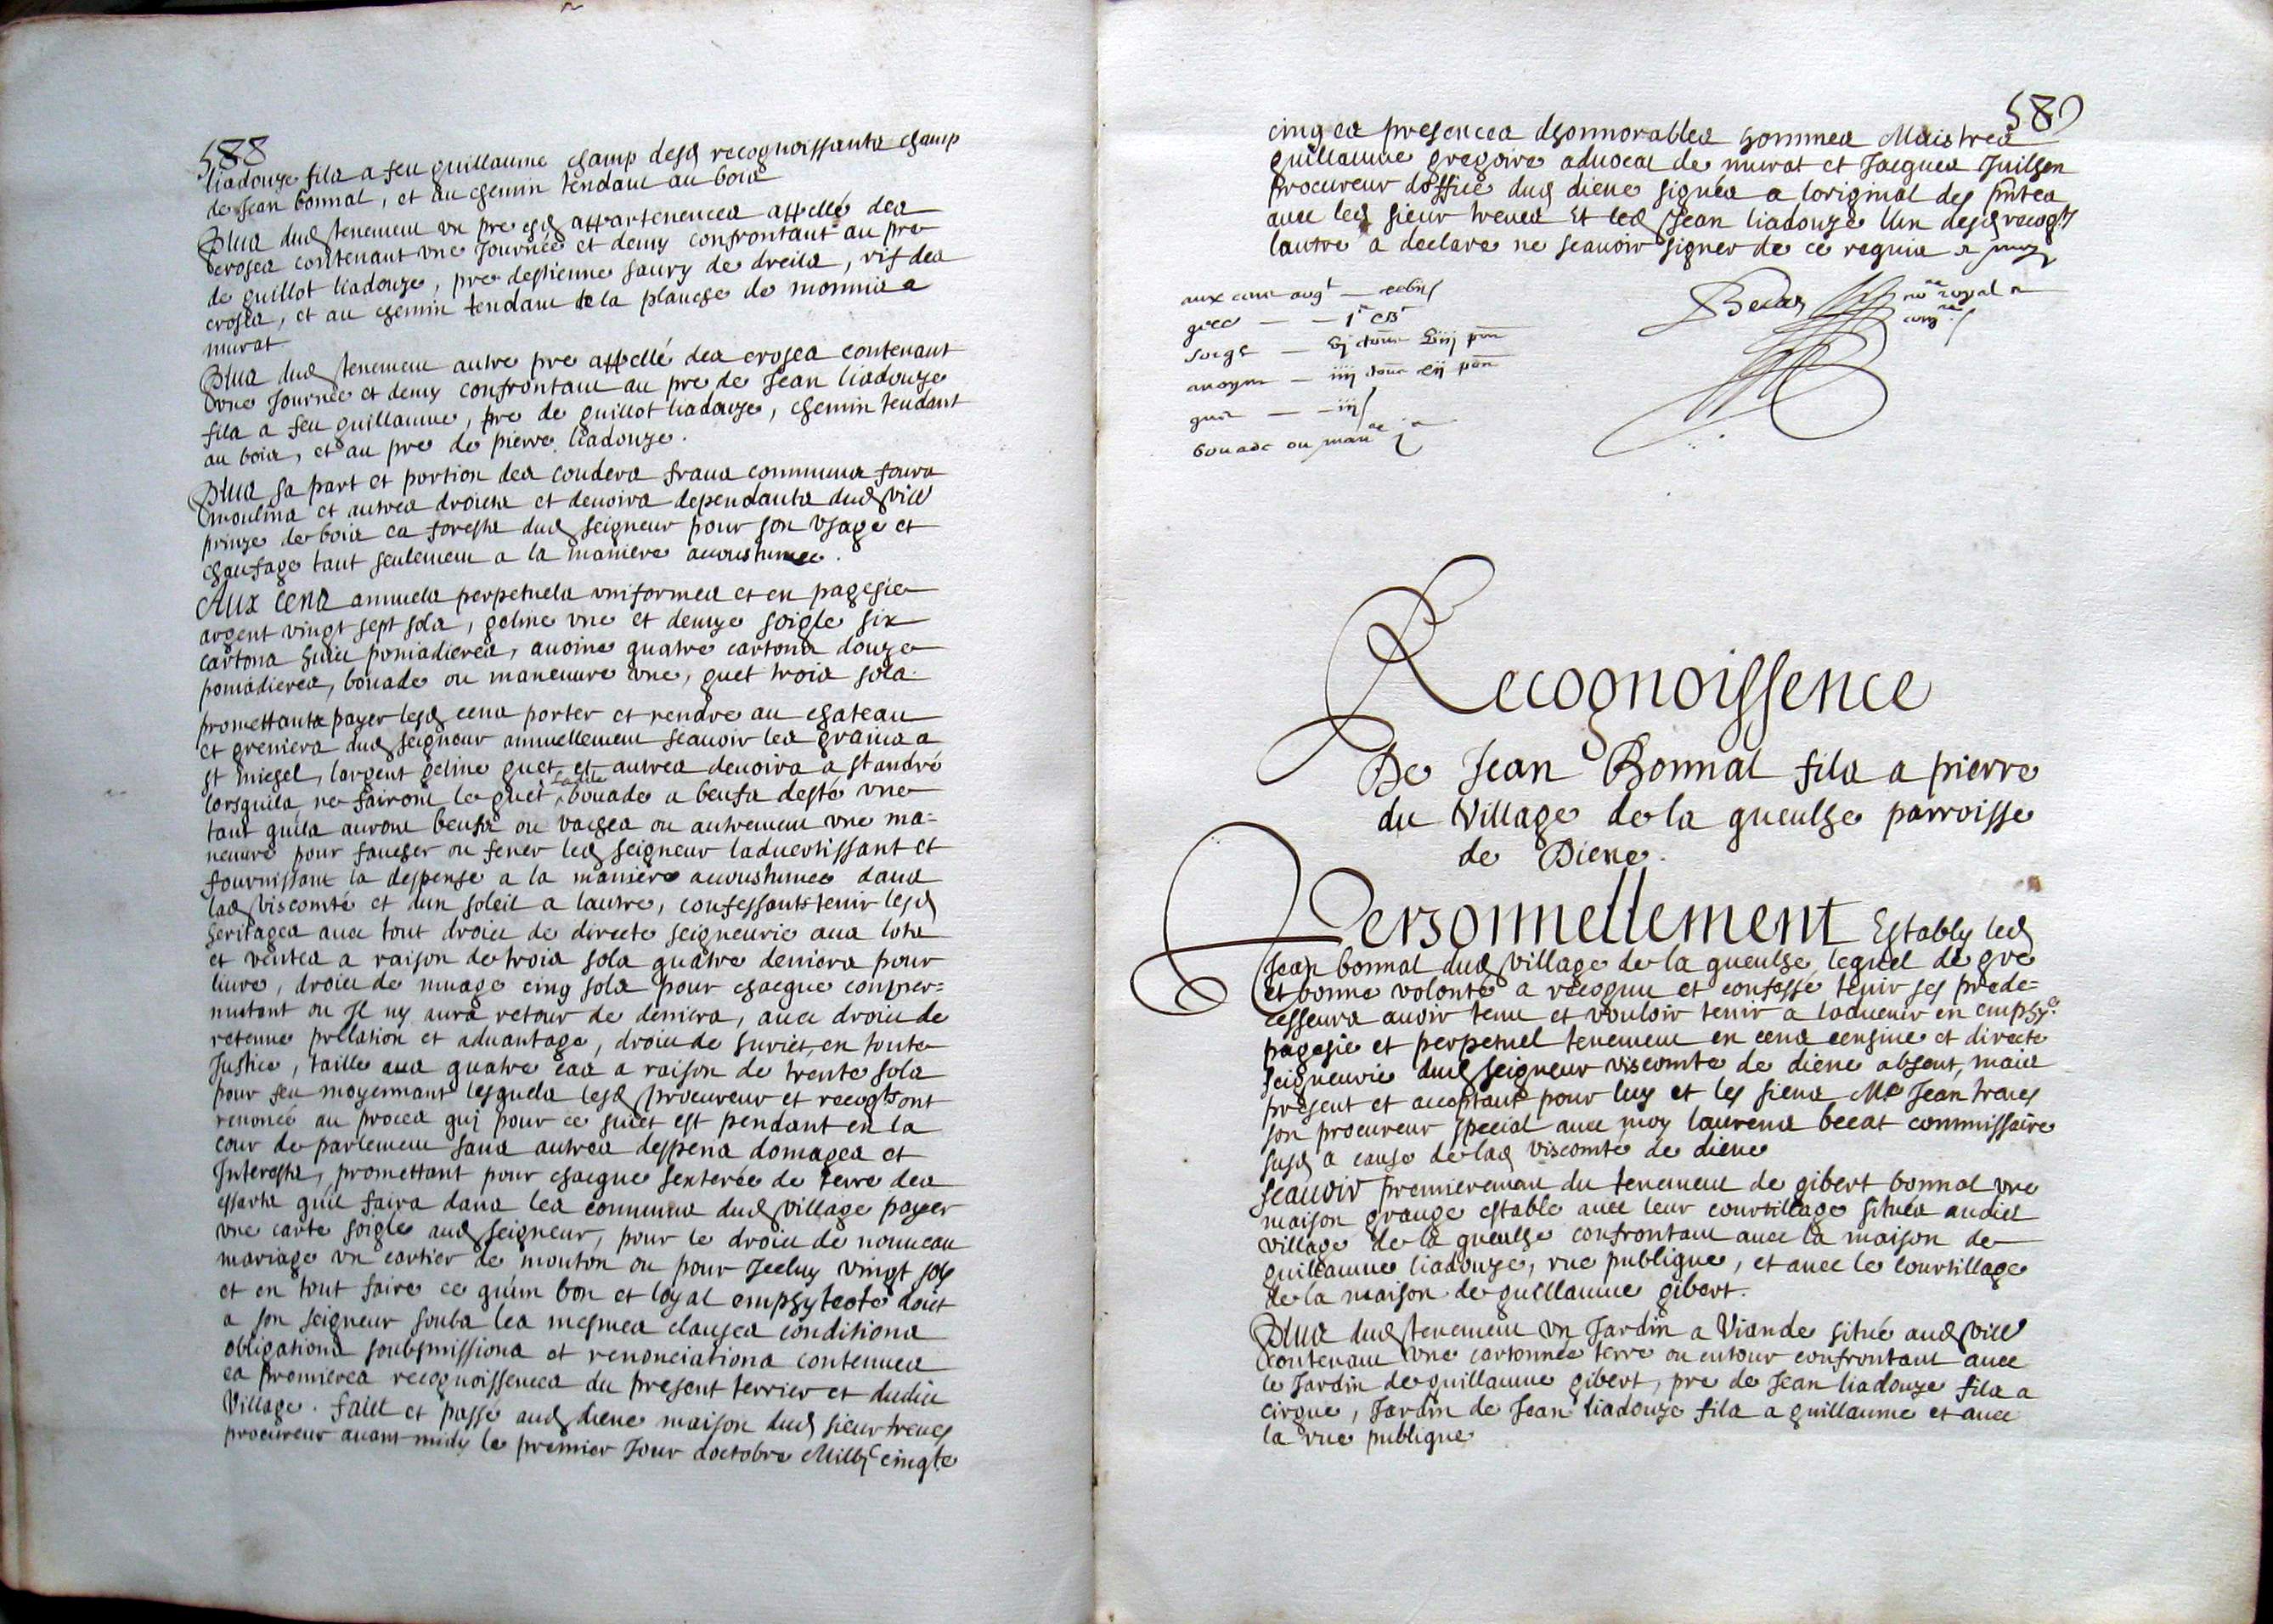 588
liadouze fils a feu guillaume champ desd recognoissants champ
de Jean bonnal, et au chemin tendant au bois
Plus dud tenement un pre esd appartenences appellé des
croses contenant une Journée et demy confrontant au pre
de guillot liadouze, pre destienne saury de dreils, rif des
croses, et au chemin tendant de la planche de monnis a
murat
Plus dud tenement autre pre appellé des croses contenant
une Journée et demy confrontant au pre de Jean liadouze
fils a feu guillaume, pre de guillot liadouze, chemin tendant
au bois, et au pre de pierre liadouze.
Plus sa part et portion des couders fraus communs fours
moulins et autres droicts et devoirs dependants dud vill
prinze de bois ea forests dud seigneur pour son usage et
chaufage tant seulement a la maniere accoustumee.
Aux Cens annuels perpetuels uniformes et en pagesie
argent vingt sept sols, geline une et demye soigle six
cartons huict pomadieres, avoine quatre cartons douze
pomadieres, bouade ou maneuvre une, guet trois sols.
promettants payer lesd cens porter et rendre au chateau
et greniers dud seigneur annuellement scauoir les grains a
st michel, largent geline guet et autres devoirs a st andré
lorsquils ne fairont le guet, ladite bouade a beufs desté une
tant quils auront beufs ou vaches ou autrement une ma=
neuvre pour faucher ou fener led seigneur laduertissant et
fournissant la despense a la maniere accoustumee dans
lad viscomté et dun soleil a lautre, confessants tenir lesd
heritages avec tout droict de directe seigneurie aus lots
et ventes a raison de trois sols quatre deniers pour
liure, droict de muage cinq sols pour chacque conper=
mutant ou Il ny aura retour de deniers, avec droict de
retenue prlation et aduantage, droict de suriet, en toute
Justice, taille aus quatre cas a raison de trente sols
pour feu moyennant lesquels lesd procureur et recogts ont
renoncé au proces qui pour ce suiet est pendant en la
cour de parlement sans autres despens domages et
Interests, promettant pour chacque sexterée de terre des
essarts quil faira dans les communs dud village payer
une carte soigle aud seigneur, pour le droict de nouveau
mariage un cartier de mouton ou pour Jceluy vingt sols
et en tout faire ce qu'un bon et loyal emphyteote doict
a son seigneur soubs les mesmes clauses conditions
obligations soubsmissions et renonciations contenues
ea premieres recognoissences du present terrier et dudict
Village. faict et passé aud diene maison dud sieur treves
procureur avant midy le premier Jour doctobre Mil vjc cinqte
589
cinq ea presences dhonnorables hommes Maistres
guillaume gregoire aduocat de murat et Jacques Juilhen
Procureur doffice dud diene signés a loriginal des pntes
avec led sieur treves Et led Jean liadouze lun desd recogts
lautre a declare ne scauoir signer de ce requis et moy
aux cens argt
gee
soigle vj cton viij pon
avoyne iiij ctons xij pon
guet iij s
bouade ou manre j
Becat
nore royal
comre
Recognoissence
De Jean Bonnal fils a pierre
du Village de la gueulhe parroisse
de Diene.
Personnellement Estably led
Jean bonnal dud village de la gueulhe, lequel de gre
et bonne volonte a recognu et confessé tenir ses prede=
cesseurs auoir tenu et vouloir tenir a laduenir en emphye
pagesie et perpetuel tenement en cens censive et directe
seigneurie dud seigneur viscomte de diene absent, mais
present et acceptant pour luy et les siens Me Jean treves
son procureur special avec moy laurens becat commissaire
susd a cause de lad viscomté de diene
scauoir premierement du tenement de gibert bonnal une
maison grange estable avec leur courtillage situés audict
village de la gueulhe confrontant avec la maison de
guillaume liadouze, rue publique, et avec le courtillage
de la maison de guillaume gibert.
Plus dud tenement un Jardin a Viande situé aud vill
contenant une cartonnee terre ou entour confrontant avec
le Jardin de guillaume gibert, pre de Jean liadouze fils a
cirque, Jardin de Jean liadouze fils a guillaume et avec
la rue publique